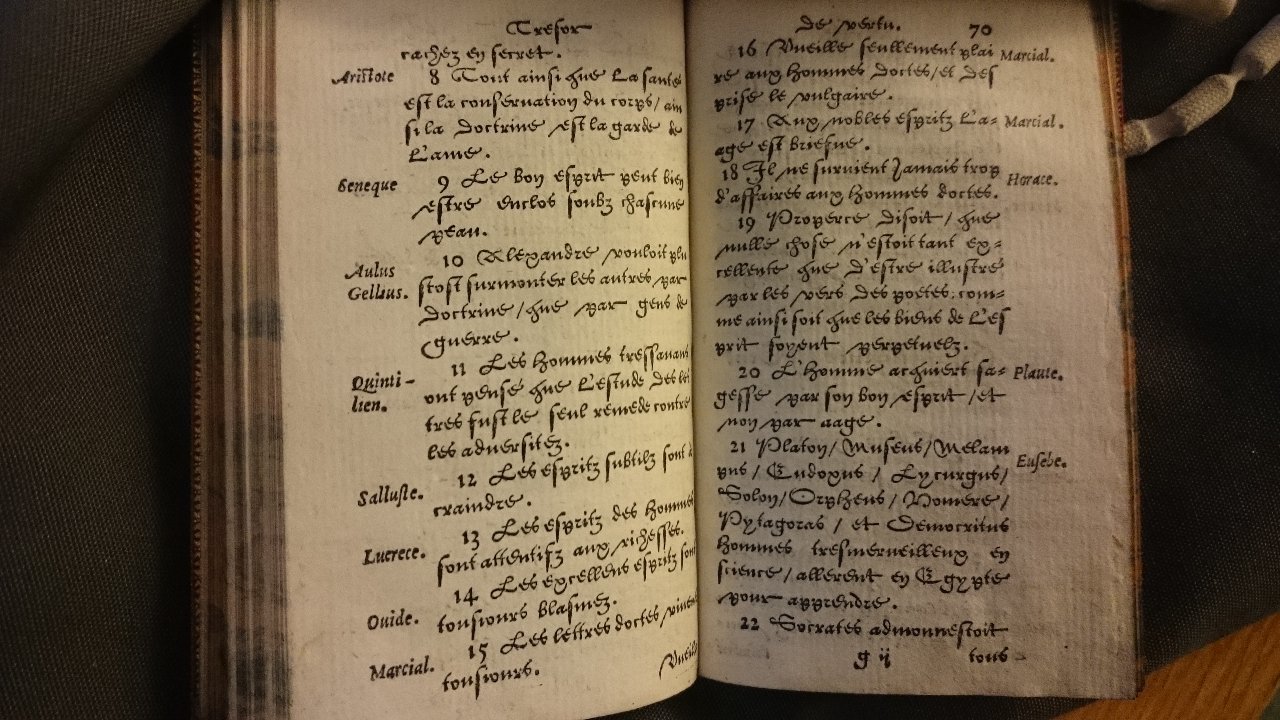 Tresor
cachez en secret.
Aristote
8 Tout ainsi que la santé
est la conservation du corps/ ain
si la doctrine est la garde de
l'ame.
Seneque
9 Le bon esprit peut bien
estre enclos soubz chascune
peau.
Aulus
Gellius.
10 Alexandre vouloit plu
stost surmonter les autres par
doctrine/ que par gens de
guerre.
Quinti-
lien.
11 Les hommes tressavans
ont pensé que l'estude des let
tres fust le seul remede contre
les adversitez.
Salluste.
12 Les espritz subtilz sont à
craindre.
Lucrece.
13 Les espritz des hommes
sont attentifz aux richesses.
Ouide.
14 Les excellens espritz sont
tousiours blasmez.
Marcial.
15 Les lettres doctes vivent
tousiours.
Vueille
De vertu. 70
16 Vueille seullement plai
re aux hommes doctes/ et des
prise le vulgaire.
Marcial.
17 Aux nobles espritz l'a-
age est briefue.
Marcial.
18 Il ne survient jamais trop
d'affaires aux hommes doctes.
Horace.
19 Properce disoit/ que
nulle chose n'estoit tant ex-
cellente que d'estre illustré
par les vers des poetes: com-
me ainsi soit que les biens de l'es
prit soyent perpetuelz.
20 L'homme acquiert sa-
gesse par son bon esprit/ et
non par aage.
Plaute.
21 Platon/ Museus/ Melam
pus/ Eudoxus/ Lycurgus/
Solon/ Orpheus/ Homere/
Pytagoras/ et Democritus
hommes tresmerveilleux en
science/ allerent en Egypte
pour apprendre.
Eusebe.
22 Socrates admonnestoit
g ij
tous